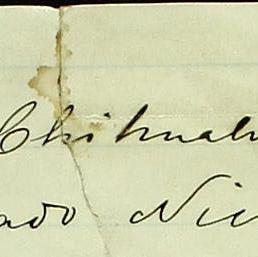 Chihuahu
ado Nic